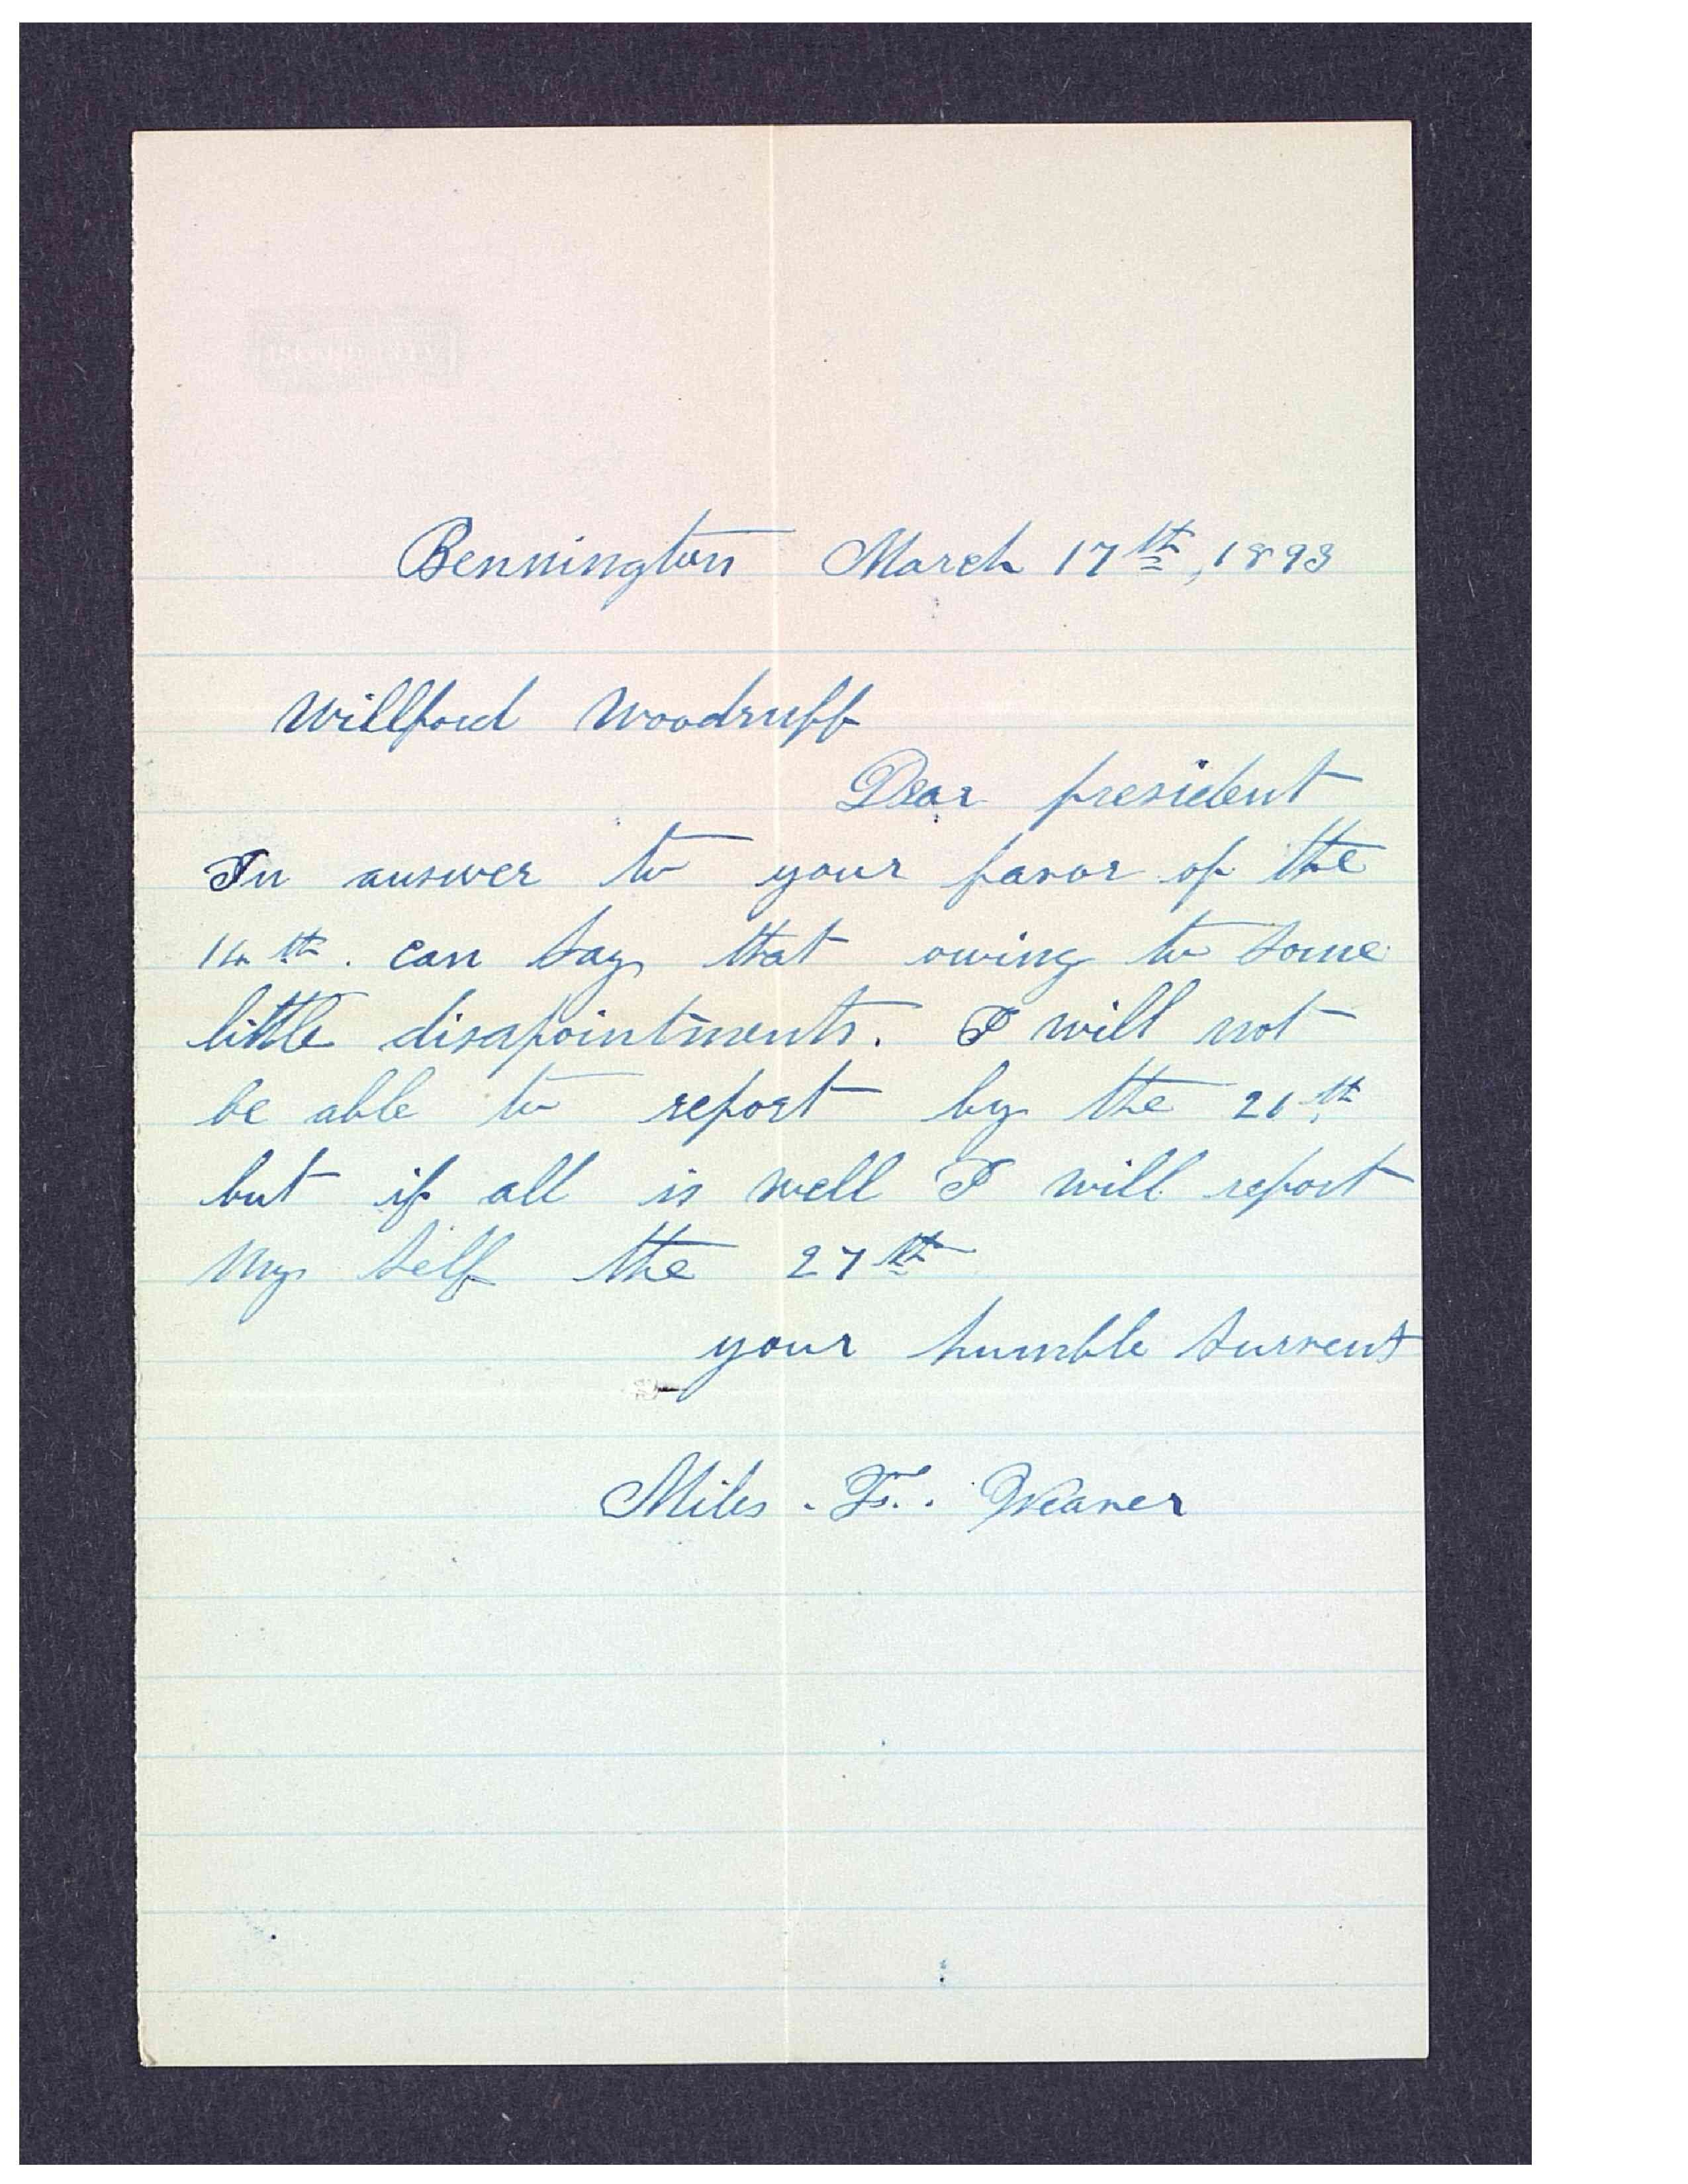 Bennington March 17th, 1893
Willford Woodruff
Dear president
In answer to your favor of the
14th. can say that owing to some
little disapointments. I will not
be able to report by the 20th
but if all is well I will report
my self the 27th
your humble survent
Miles. F.. Weaver